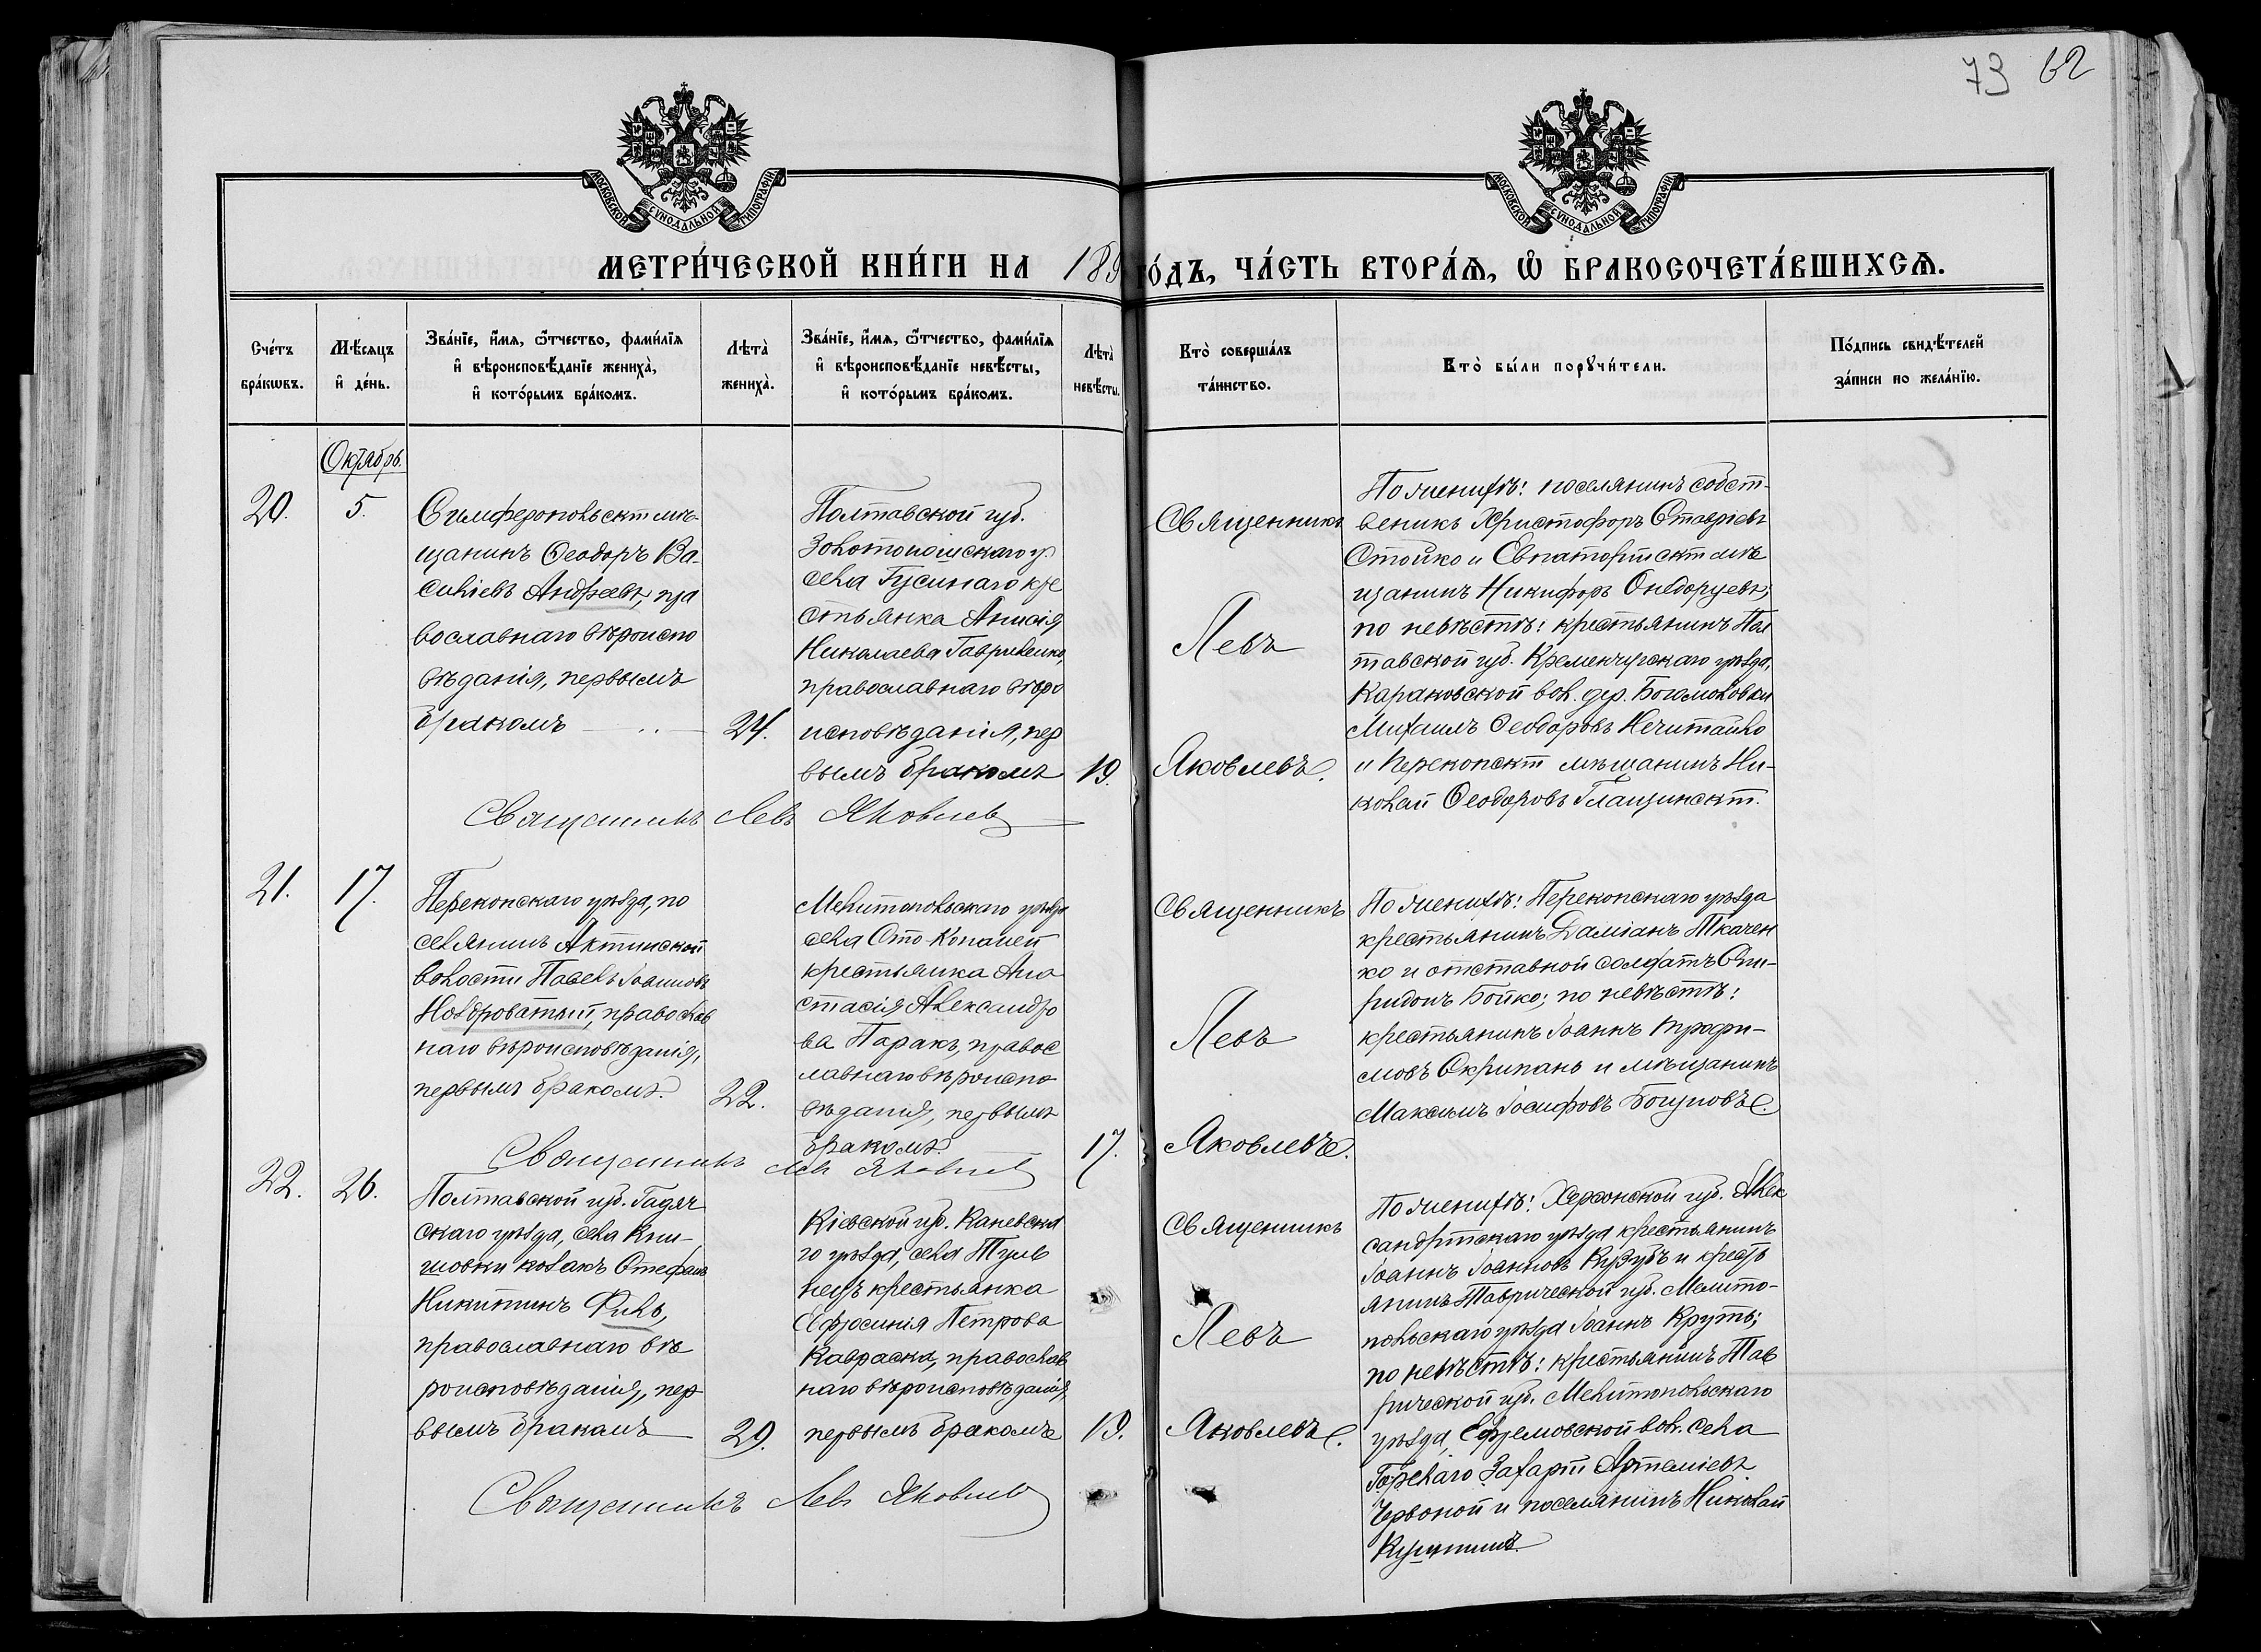 73 62
МОСКОВСКОЙ СУНОДАЛЬНОЙ ТИПОГРАФІИ
МОСКОВСКОЙ СУНОДАЛЬНОЙ ТИПОГРАФІИ
МЕТРИ́ЧЕСКОЙ КНИ́ГИ НА 189
го́дъ, ЧА́СТЬ ВТОРА́Ѧ, Ѽ БРАКОСОЧЕТА́ВШИХСѦ.
Сче́тъ
бра́кѡвъ.
Мѣ́сяцъ
и҆ де́нь.
Зва́нїе, и҆́мѧ, ѻ҆́тчество, фами́лїѧ
и҆ вѣроисповѣ́данїе жениха̀,
и҆ кото́рымъ бра́комъ.
Лѣта̀
жениха̀.
Зва́нїе, и҆́мѧ, ѻ҆́тчество, фами́лїѧ
и҆ вѣроисповѣ́данїе невѣ́сты,
и҆ кото́рымъ бра́комъ.
Лѣта̀
невѣ́сты.
Кто̀ соверша́лъ
та́инство.
Кто̀ бы́ли порꙋчи́тели.
По́дпись свидѣ́телей
за́писи по жела́нїю.
Октябрь.
20.
5.
Симферопольскій мѣ-
щанинъ Ѳеодоръ Ва-
силіевъ Андреевъ, пра
вославнаго вѣроиспо
вѣданія, первымъ
бракомъ
24.
Полтавской губ.
Золотоношскаго у.
села Гусинаго кре
стьянка Анисія
Николаева Гавриленко,
православнаго вѣро
исповѣданія, пер
вымъ бракомъ
19.
Священникъ
Левъ
Яковлевъ.
По женихѣ: поселянинъ собст-
веникъ Христофоръ Ставріевъ
Стойко и Евпаторійскій мѣ
щанинъ Никифоръ Онедоруевъ;
по невѣстѣ: крестьянинъ Пол
тавской губ. Кременчугскаго уѣзда,
вол. дер. Богомоловки
Михаилъ Ѳеодоровъ Нечитайло
и Перекопскій мѣщанинъ Ни-
колай Ѳеодоровъ Глащинскій.
Священникъ Левъ Яковлевъ
21.
17.
Перекопскаго уѣзда, по
селянинъ Актинской
волости Павелъ Іоанновъ
Новброватный, православ
наго вѣроисповѣданія,
первымъ бракомъ.
22.
Мелитопольскаго уѣзда
села Сто-Копаней
крестьянка Ана
стасія Александро
ва Паракъ, правос
лавнаго вѣроиспо
вѣданія, первымъ
бракомъ.
17.
Священникъ
Левъ
Яковлевъ.
По женихѣ: Перекопскаго уѣзда
крестьянинъ Даміанъ Ткачен
ко и отставной солдатъ Спи-
ридонъ Бойко; по невѣстѣ:
крестьянинъ Іоаннъ Трофи-
мовъ Скрипаль и мѣщанинъ
Максимъ Іосифовъ Богуновъ.
Священникъ Левъ Яковлевъ
22.
26.
Полтавской губ. Гадяч
скаго уѣзда, села Кни-
шовки козакъ Стефанъ
Никитинъ Филь,
православнаго вѣ
роисповѣданія, пер
вымъ бракомъ
29.
Кіевской губ. Каневска
го уѣзда, села Тули
нецъ крестьянка
Ефросинія Петрова
Кавраска, православ
наго вѣроисповѣданія,
первымъ бракомъ
19.
Священникъ
Левъ
Яковлевъ.
По женихѣ: Херсонской губ. Алек
сандрійскаго уѣзда крестьянинъ
Іоаннъ Іоанновъ Кузубъ и кресть
янинъ Таврической губ. Мелито-
польскаго уѣзда Іоаннъ Круть;
по невѣстѣ: крестьянинъ Тав
рической губ. Мелитопольскаго
уѣзда, Ефремовской вол. села
Горелаго Захарій Артеміевъ
Червоной и поселянинъ Николай
Священникъ Левъ Яковлевъ